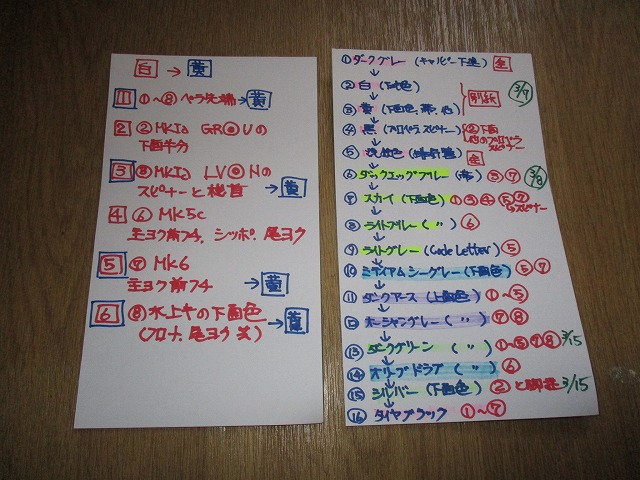 白 → 黄
1 ①~⑧ ペラ先端 → 黄
2 ② MKIa GR◎Uの
下面半分
3 ③ MKIa LV◎Nの
スピナーと機首 → 黄
4 ⑥ MK5c
主ヨク前フチ, シッポ, 尾ヨク
5 ⑦ MK6
主ヨク前フチ → 黄
6 ⑧ 水上キの下面色
(フロート, 尾ヨク 〃) → 黄
① ダークグレー (キャノピー下塗) 全
② 白 (下地色)
③ 黄 (下面色, 帯, 他)
別紙 3/7
④ 黒 (プロペラ スピナー) ② 下面
他のプロペラ
スピナー
⑤ 全
⑥ ダックエッグブルー (帯) ③ ⑦ 3/8
⑦ スカイ (下面色) ① ③ ④ ⑤ ⑦
スピナー
⑧ ライトブルー (〃) ⑥
⑨ ライトグレー (Code Letter) ⑤
⑩ ミディアムシーグレー (下面色) ⑤ ⑦
⑪ ダークアース (上面色) ①~⑤
⑫ オーシャングレー (〃) ⑦ ⑧
⑬ ダークグリーン (〃) ①~⑤ ⑦ ⑧ 3/15
⑭ オリーブドラブ (〃) ⑥
⑮ シルバー (下面色) ② と脚柱 3/15
⑯ タイヤブラック ①~⑦